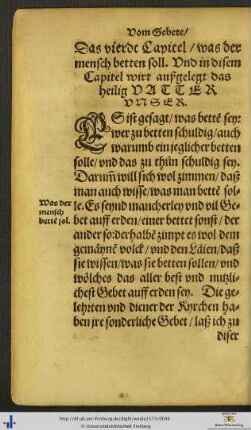 Vom Gebete/
Das vierdt Capitel / was der
mensch betten soll. Vnd in disem
Capitel wirt außgelegt das
heilig VATTER
VNSER.
ES ist gesagt/ was bettē sey:
wer zu betten schuldig/ auch
warumb ein jeglicher betten
solle/ vnd das zu thůn schuldig sey.
Darum̄ will sich wol zimmen/ daß
man auch wisse/ was man bettē sol-
le. Es seynd mancherley vnd vil Ge-
bet auff erden/ einer bettet sonst/ der
ander so: derhalbē zimpt es wol dem
gemäynē volck/ vnd den Läien/ daß
sie wissen/ was sie betten sollen/ vnd
wölches das aller best vnd nutzli-
chest Gebet auff erden sey. Die ge-
lehrten vnd diener der Kyrchen ha-
ben jre sonderliche Gebet/ laß ich zu
diser
Was der
mensch
bettē sol.
http://dl.ub.uni-freiburg.de/diglit/
© Universitätsbibliothek Freiburg